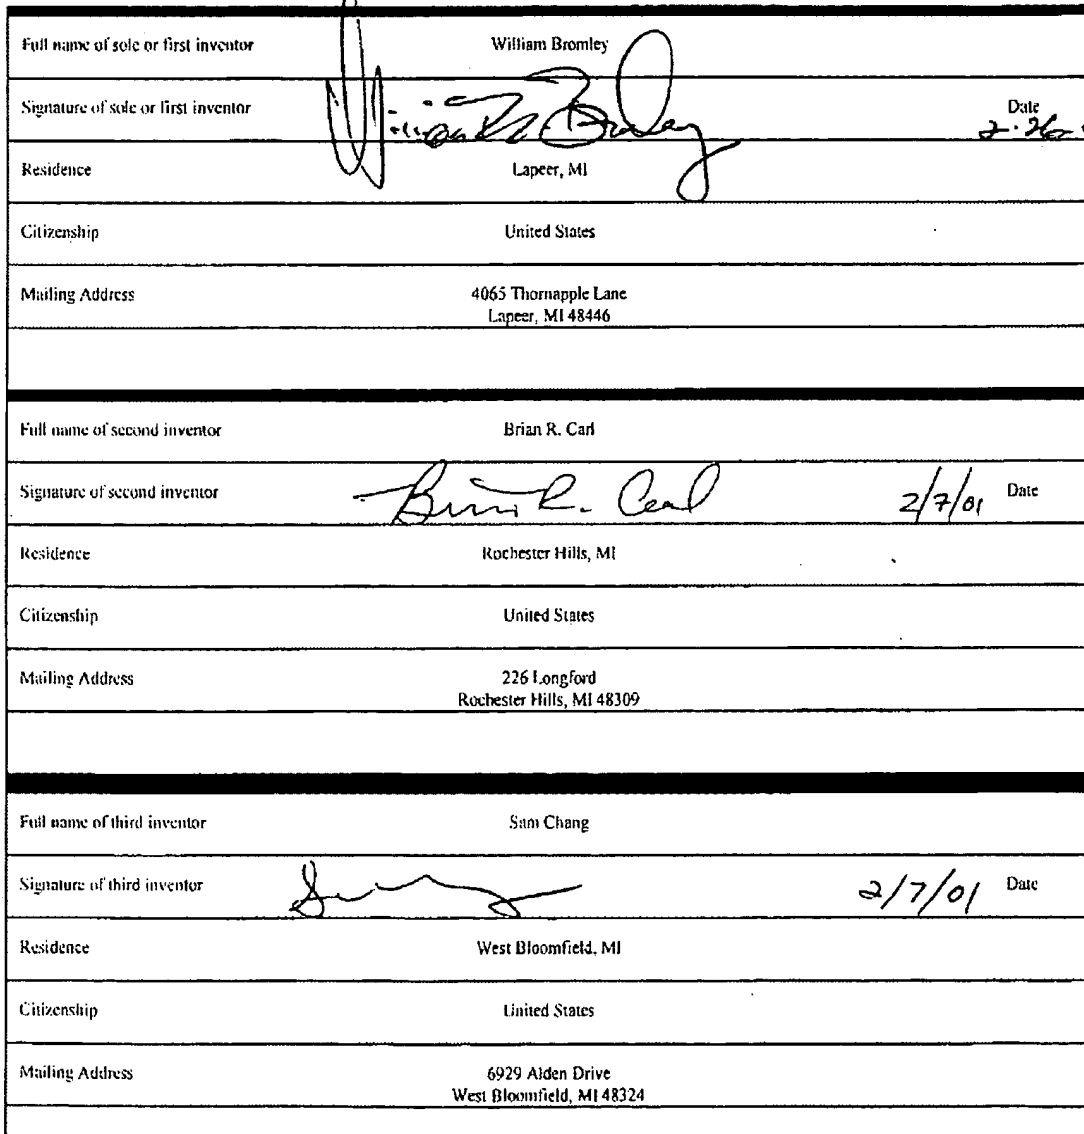 Full name of sole or first inventor William Bromley
Signature of sole or first inventor William Bromley Date
2-26-
Residence Lapeer, MI
Citizenship United States
Mailing Address 4065 Thornapple Lane
Lapeer, MI 48446
Full name of second inventor Brian R. Carl
Signature of second inventor Brian R. Carl 2/7/01 Date
Residence Rochester Hills, MI
Citizenship United States
Mailing Address 226 Longford
Rochester Hills, MI 48309
Full name of third inventor Sam Chang
Signature of third inventor 2/7/01 Date
Residence West Bloomfield, MI
Citizenship United States
Mailing Address 6929 Alden Drive
West Bloomfield, MI 48324